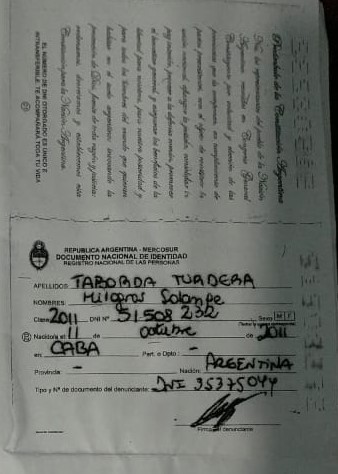 Preámbulo de la Constitución Argentina
Nos, los representantes del pueblo de la Nación
Argentina, reunidos en Congreso General
Constituyente por voluntad y elección de las
provincias que la componen, en cumplimiento de
pactos preexistentes, con el objeto de constituir la
unión nacional, afianzar la justicia, consolidar la
paz interior, proveer a la defensa común, promover
el bienestar general, y asegurar los beneficios de la
libertad para nosotros, para nuestra posteridad y
para todos los hombres del mundo que quieran
habitar en el suelo argentino: invocando la
protección de Dios, fuente de toda razón y justicia:
ordenamos, decretamos y establecemos esta
Constitución para la Nación Argentina.
EL NUMERO DE DNI OTORGADO ES UNICO E
INTRANSFERIBLE. TE ACOMPAÑARA TODA TU VIDA
REPUBLICA ARGENTINA - MERCOSUR
DOCUMENTO NACIONAL DE IDENTIDAD
REGISTRO NACIONAL DE LAS PERSONAS
APELLIDOS: TABORDA TURDERA
NOMBRES: Milagros
Clase 2011 DNI Nº 51508232 Sexo M F
Nacido/a el 11 de octubre de 2011
en: CABA Part. o Dpto: -
Provincia: - Nación: ARGENTINA
Tipo y Nº de documento del denunciante: DNI 35375044
Firma del denunciante